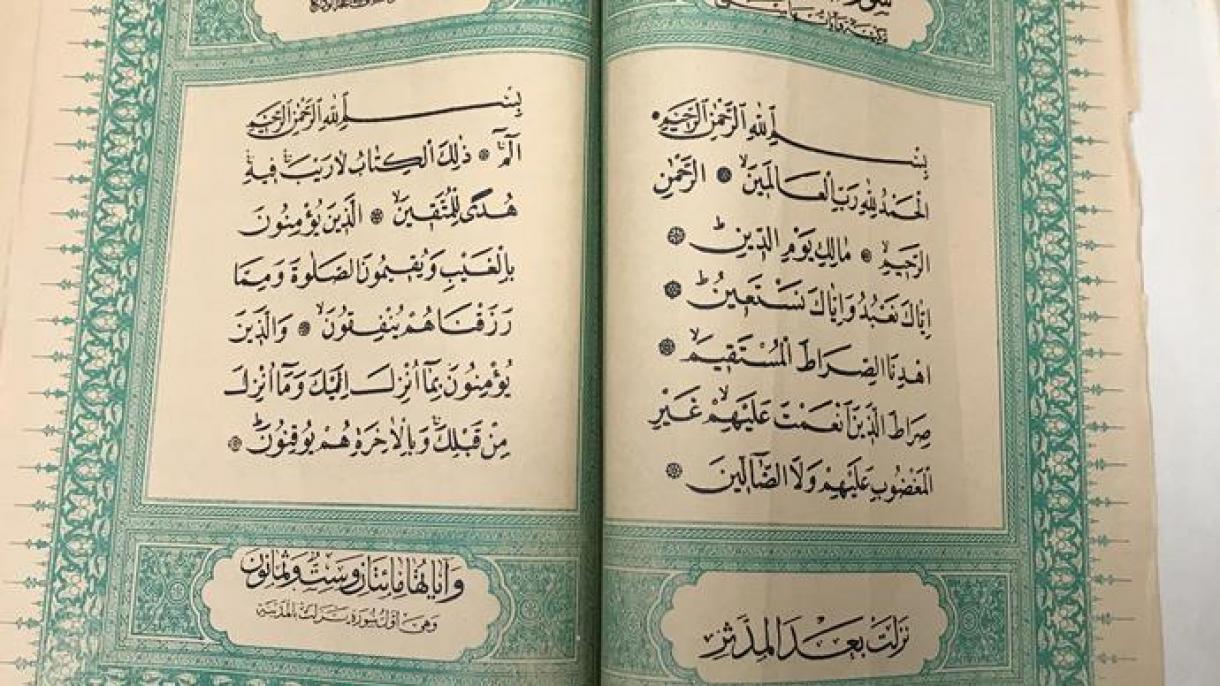 بِسْمِ اللهِ الرَّحْمٰنِ الرَّحِيمِ
اَلْحَمْدُ لِلّٰهِ رَبِّ الْعَالَمِينَۙ ۞ اَلرَّحْمٰنِ
الرَّحِيمِۙ ۞ مَالِكِ يَوْمِ الدِّينِۜ ۞
اِيَّاكَ نَعْبُدُ وَاِيَّاكَ نَسْتَعِينُۜ ۞
اِهْدِنَا الصِّرَاطَ الْمُسْتَقِيمَۙ ۞
صِرَاطَ الَّذِينَ اَنْعَمْتَ عَلَيْهِمْۙ غَيْرِ
الْمَغْضُوبِ عَلَيْهِمْ وَلَا الضَّٓالِّينَ ۞
نَزَلَتْ بَعْدَ الْمُدَّثِّرِ
بِسْمِ اللهِ الرَّحْمٰنِ الرَّحِيمِ
الٓمٓۚ ۞ ذٰلِكَ الْكِتَابُ لَا رَيْبَۚۛ فِيهِۚۛ
هُدًى لِلْمُتَّقِينَۙ ۞ اَلَّذِينَ يُؤْمِنُونَ
بِالْغَيْبِ وَيُقِيمُونَ الصَّلٰوةَ وَمِمَّا
رَزَقْنَاهُمْ يُنْفِقُونَۙ ۞ وَالَّذِينَ
يُؤْمِنُونَ بِمَٓا اُنْزِلَ اِلَيْكَ وَمَٓا اُنْزِلَ
مِنْ قَبْلِكَۚ وَبِالْاٰخِرَةِ هُمْ يُوقِنُونَۜ ۞
وَاٰيَاتُهَا مِائَتَانِ وَسِتٌّ وَثَمَانُونَ
وَهِيَ اَوَّلُ سُورَةٍ نَزَلَتْ بِالْمَدِينَةِ